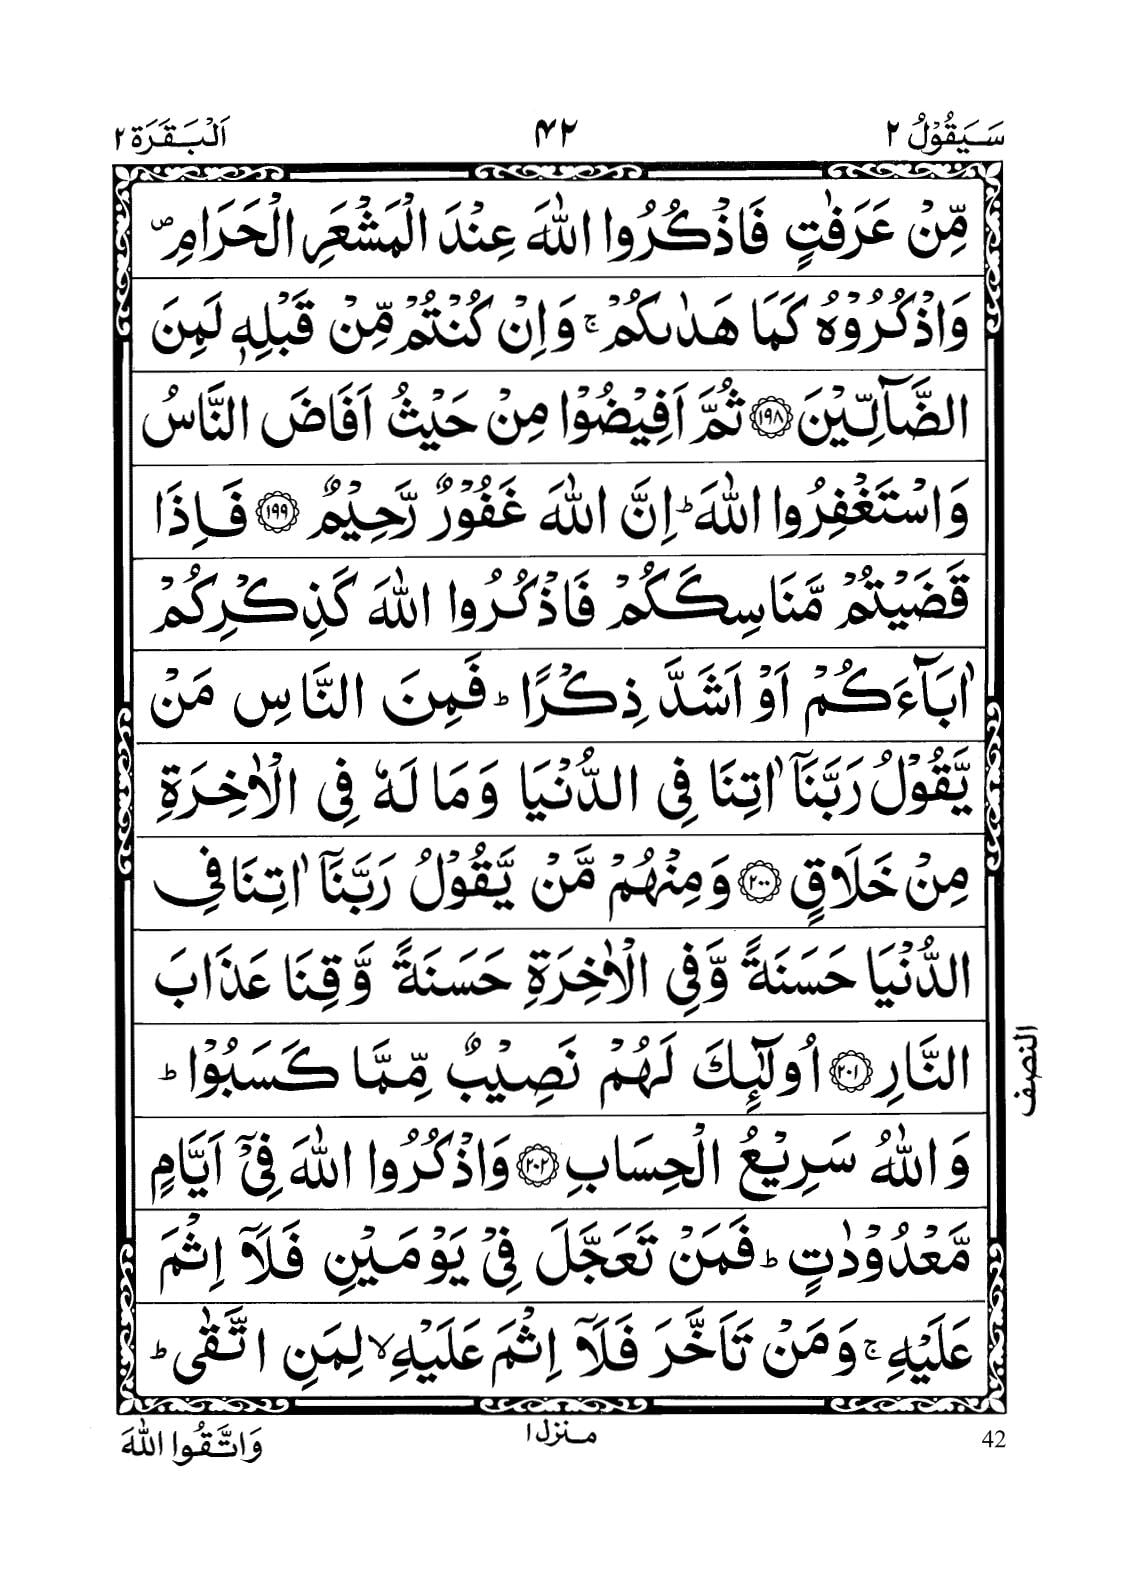 سَيَقُوْلُ ٢
۴۲
اَلْبَقَرَة ٢
مِّنْ عَرَفٰتٍ فَاذْكُرُوا اللّٰهَ عِنْدَ الْمَشْعَرِ الْحَرَامِ ۪
وَاذْكُرُوْهُ كَمَا هَدٰىكُمْ ۚ وَاِنْ كُنْتُمْ مِّنْ قَبْلِهٖ لَمِنَ
الضَّآلِّيْنَ ﴿۱۹۸﴾ ثُمَّ اَفِيْضُوْا مِنْ حَيْثُ اَفَاضَ النَّاسُ
وَاسْتَغْفِرُوا اللّٰهَ ؕ اِنَّ اللّٰهَ غَفُوْرٌ رَّحِيْمٌ ﴿۱۹۹﴾ فَاِذَا
قَضَيْتُمْ مَّنَاسِكَكُمْ فَاذْكُرُوا اللّٰهَ كَذِكْرِكُمْ
اٰبَآءَكُمْ اَوْ اَشَدَّ ذِكْرًا ؕ فَمِنَ النَّاسِ مَنْ
يَّقُوْلُ رَبَّنَآ اٰتِنَا فِى الدُّنْيَا وَمَا لَهٗ فِى الْاٰخِرَةِ
مِنْ خَلَاقٍ ﴿۲۰۰﴾ وَمِنْهُمْ مَّنْ يَّقُوْلُ رَبَّنَآ اٰتِنَا فِى
الدُّنْيَا حَسَنَةً وَّفِى الْاٰخِرَةِ حَسَنَةً وَّقِنَا عَذَابَ
النَّارِ ﴿۲۰۱﴾ اُولٰٓئِكَ لَهُمْ نَصِيْبٌ مِّمَّا كَسَبُوْا ؕ
وَاللّٰهُ سَرِيْعُ الْحِسَابِ ﴿۲۰۲﴾ وَاذْكُرُوا اللّٰهَ فِىْٓ اَيَّامٍ
مَّعْدُوْدٰتٍ ؕ فَمَنْ تَعَجَّلَ فِىْ يَوْمَيْنِ فَلَآ اِثْمَ
عَلَيْهِ ۚ وَمَنْ تَاَخَّرَ فَلَآ اِثْمَ عَلَيْهِ ۙ لِمَنِ اتَّقٰى ؕ
النصف
42
منزل ١
وَاتَّقُوا اللّٰهَ